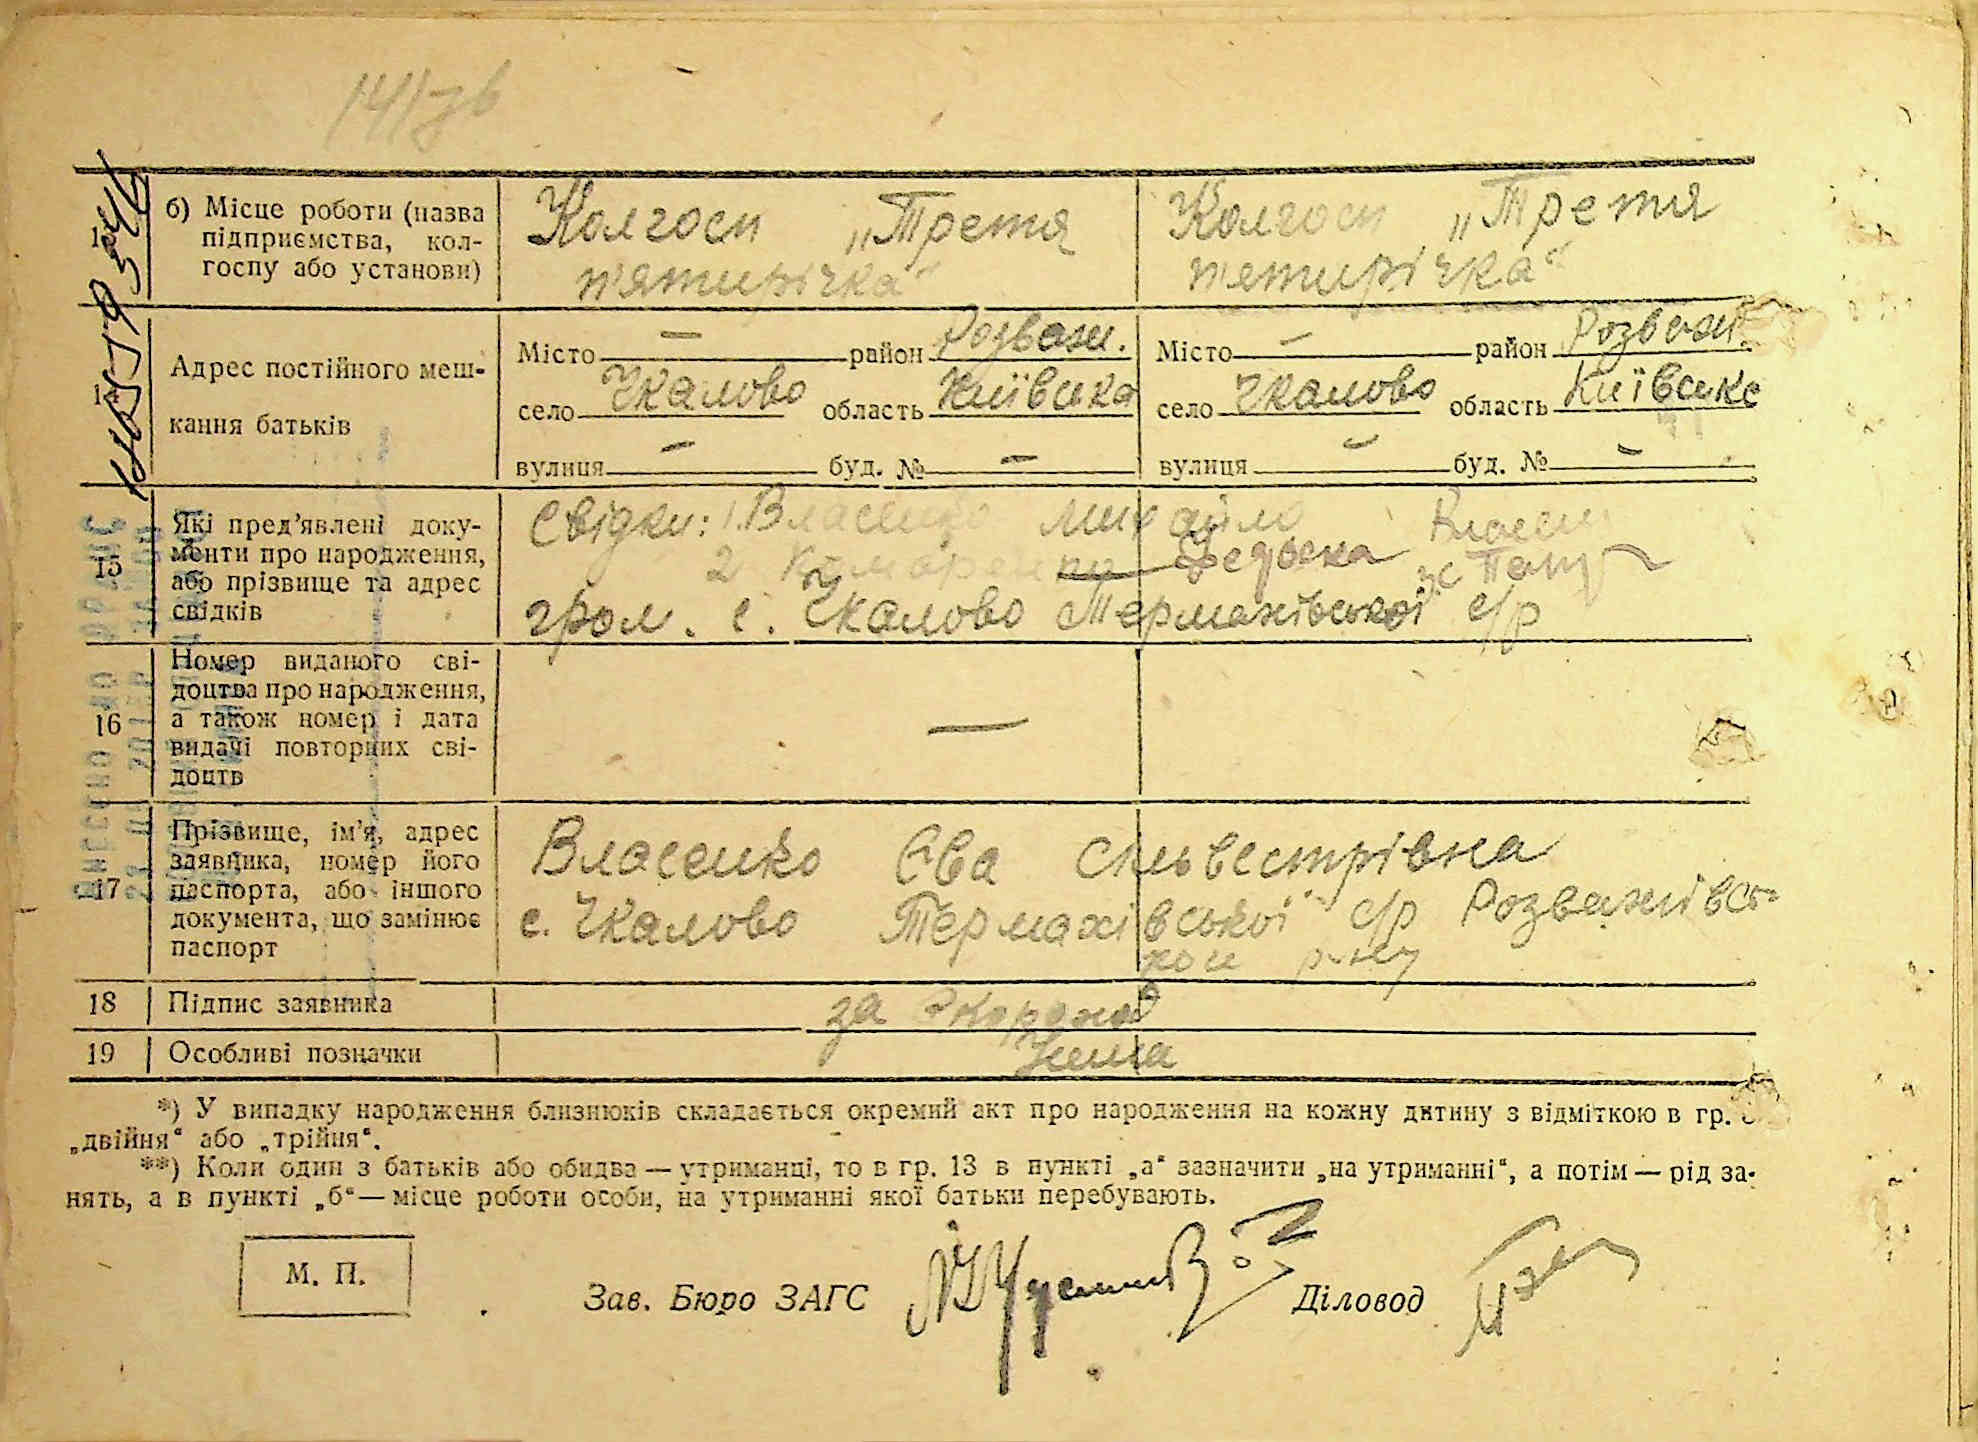 141зв
б) Місце роботи (назва
підприємства, кол-
госпу або установи)
Колгосп „Третя
п'ятирічка“
Колгосп „Третя
п'ятирічка“
Адрес постійного меш-
кання батьків
Місто — район Розваж.
село Чкалово область Київська
вулиця — буд. № —
Місто — район Розваж.
село Чкалово область Київська
вулиця — буд. № —
15
Які пред’явлені доку-
менти про народження,
або прізвище та адрес
свідків
Свідки: 1. Власенко Михайло
2 Федоська
гром. с. Чкалово Термахівської с/р
16
Номер виданого сві-
доцтва про народження,
а також номер і дата
видачі повторних сві-
доцтв
—
17
Прізвище, ім’я, адрес
заявника, номер його
паспорта, або іншого
документа, що замінює
паспорт
Власенко Єва Сильвестрівна
с. Чкалово Термахівської с/р Розважівсь-
кого р-ну
18 Підпис заявника
за
19 Особливі позначки
Нема
*) У випадку народження близнюків складається окремий акт про народження на кожну дитину з відміткою в гр.
„двійня“ або „трійня“.
**) Коли один з батьків або обидва — утриманці, то в гр. 13 в пункті „а“ зазначити „на утриманні“, а потім — рід за-
нять, а в пункті „б“ — місце роботи особи, на утриманні якої батьки перебувають.
М. П.
Зав. Бюро ЗАГС
Діловод